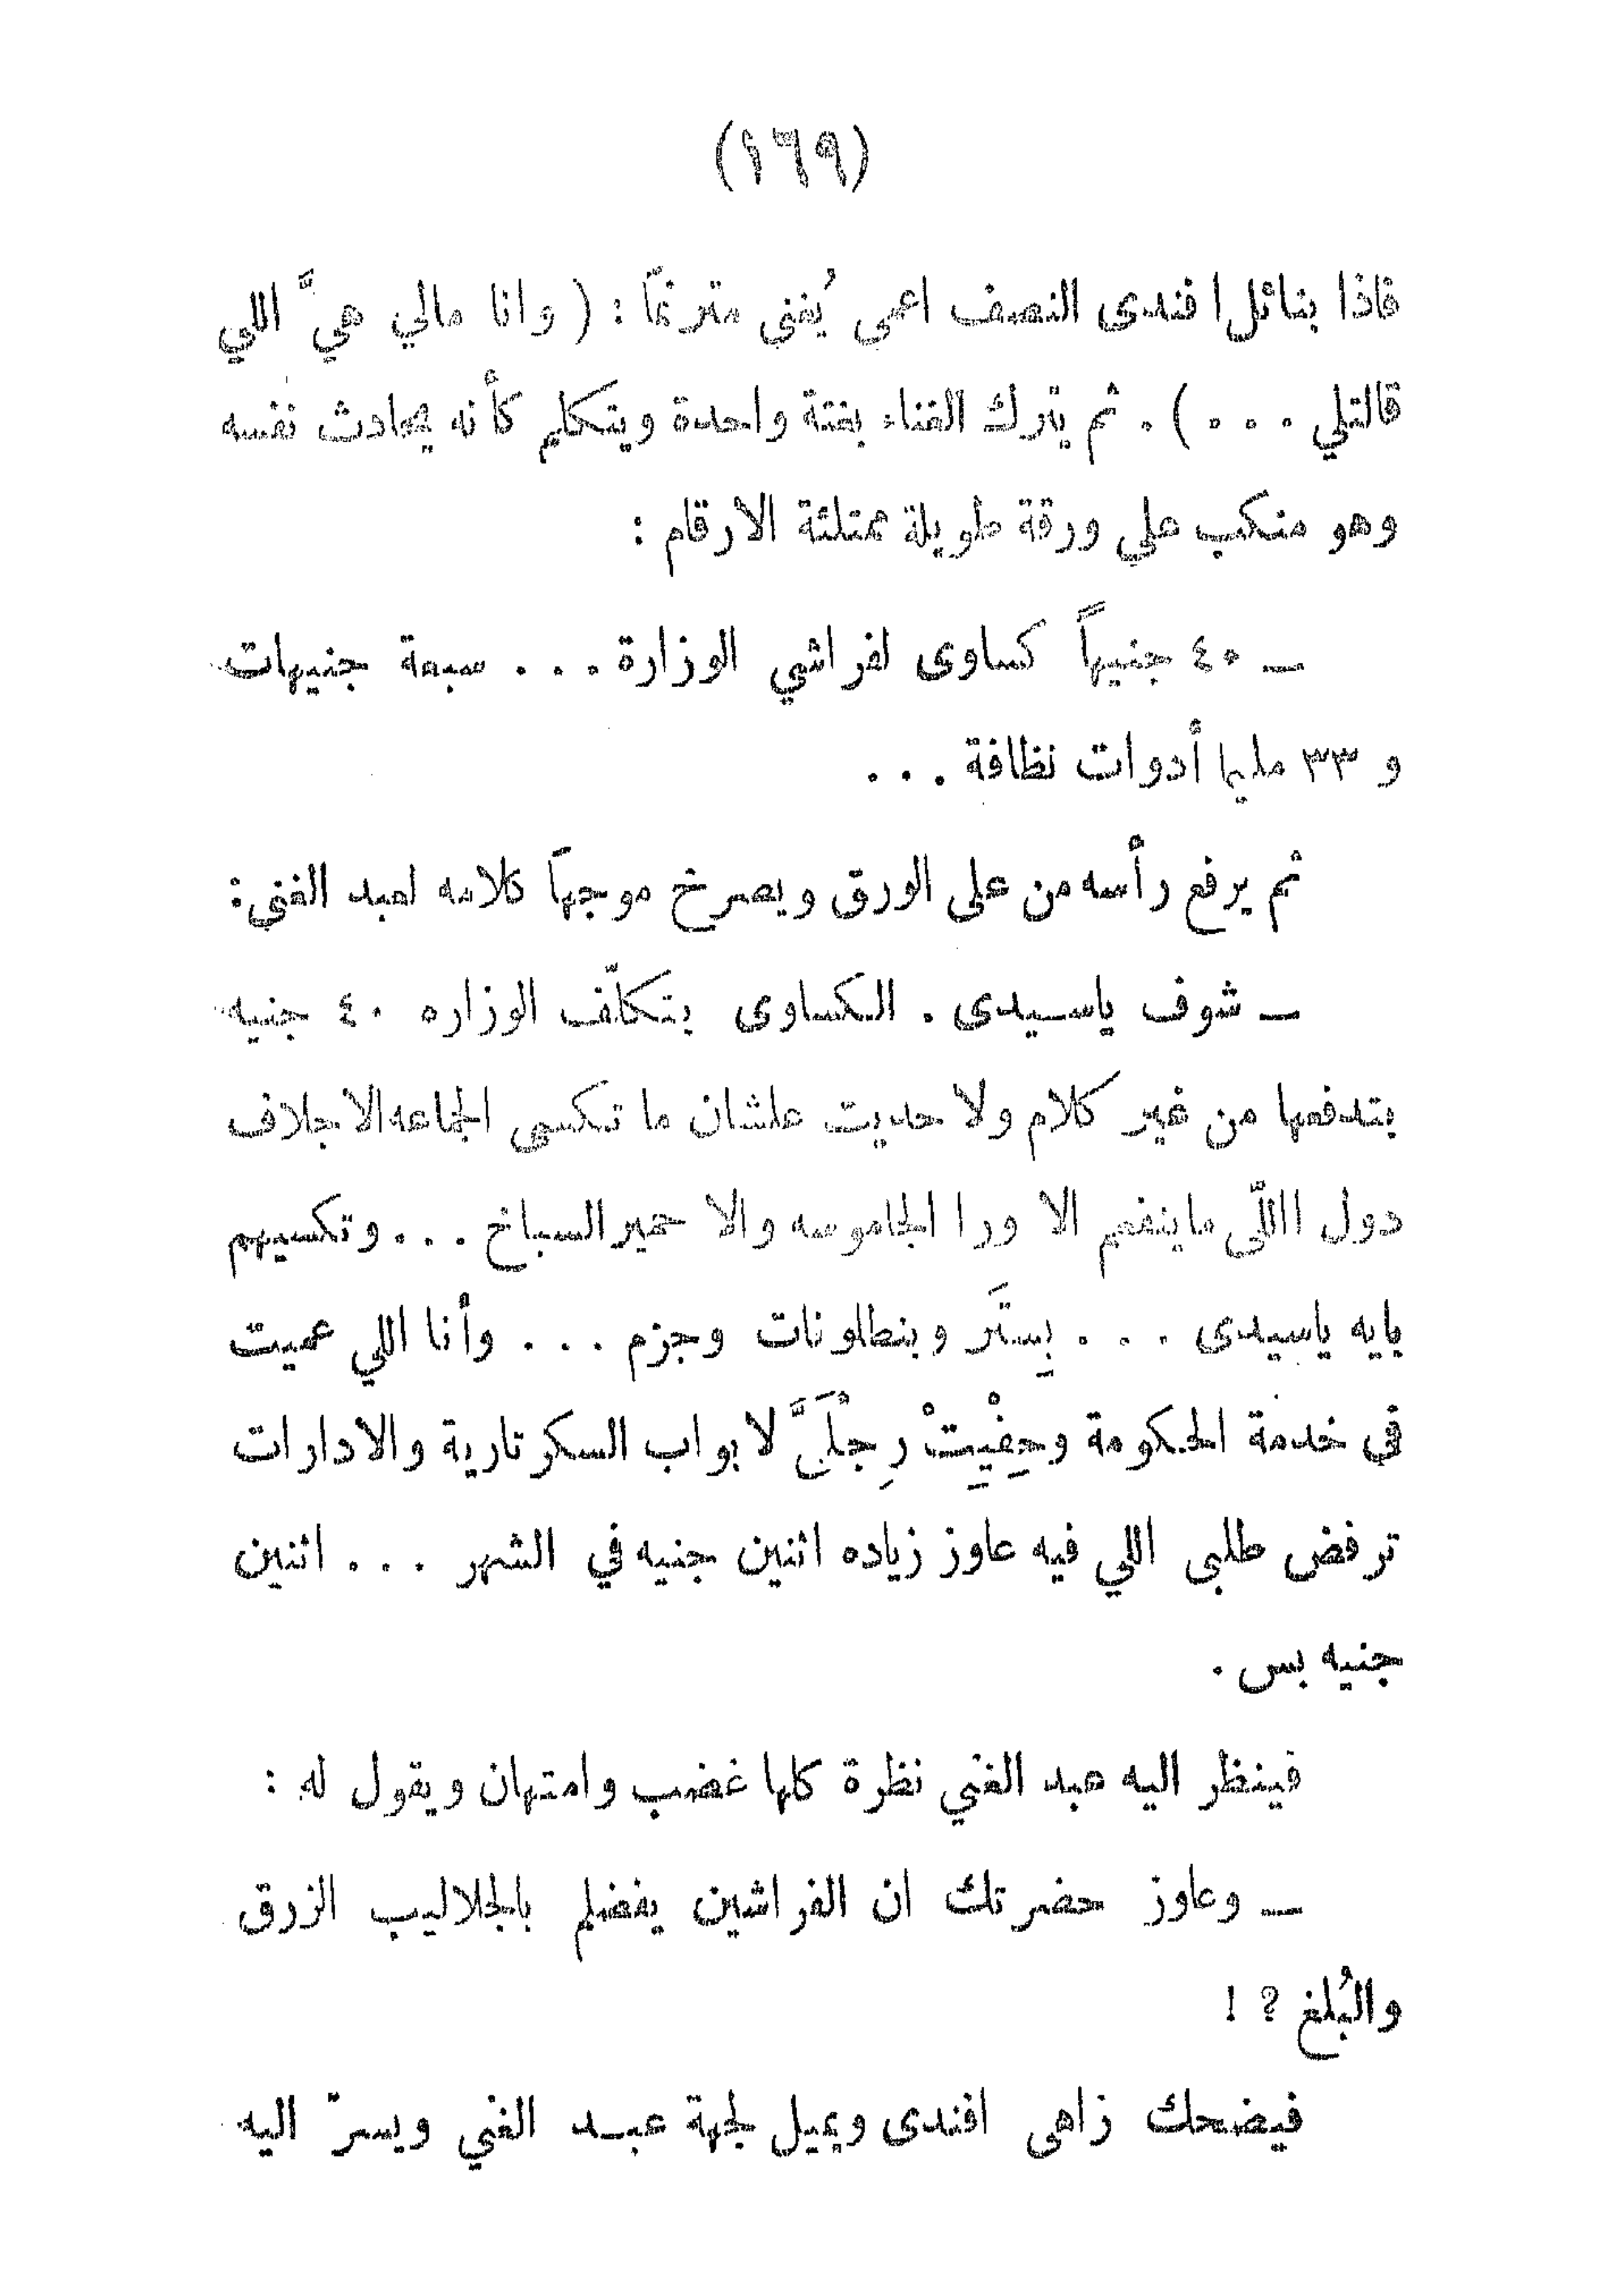 (١٦٩)
فاذا بنائل افندى النصف اعمى يُغنى مترنمًا : ( وانا مالي هيَّ اللي
قالتلي . . . ) . ثم يترك الغناء بغتة واحدة ويتكلم كأنه يحادث نفسه
وهو منكب على ورقة طويلة ممتلئة الارقام :
ــ ٤٠ جنيهاً كساوى لفراشي الوزارة . . . سبعة جنيهات
و ٣٣ مليما أدوات نظافة . . .
ثم يرفع رأسه من على الورق ويصرخ موجهاً كلامه لعبد الغنى :
ــ شوف ياسيدى . الكساوى بتكلّف الوزاره ٤٠ جنيه
بتدفعها من غير كلام ولا حديت علشان ما تكسى الجماعه الاجلاف
دول االلّى ماينفعم الا ورا الجاموسه والا حمير السباخ . . . وتكسيهم
بايه ياسيدى . . . بِستَر وبنطلونات وجزم . . . وأنا اللي عميت
في خدمة الحكومة وحِفْيِتْ رِجْلَيَّ لابواب السكرتارية والادارات
ترفض طلبى اللي فيه عاوز زياده اثنين جنيه في الشهر . . . اثنين
جنيه بس .
فينظر اليه عبد الغني نظرة كلها غضب وامتهان ويقول له :
ــ وعاوز حضرتك ان الفراشين يفضلم بالجلاليب الزرق
والبُلغ ? !
فيضحك زاهى افندى ويميل لجهة عبد الغني ويسرّ اليه